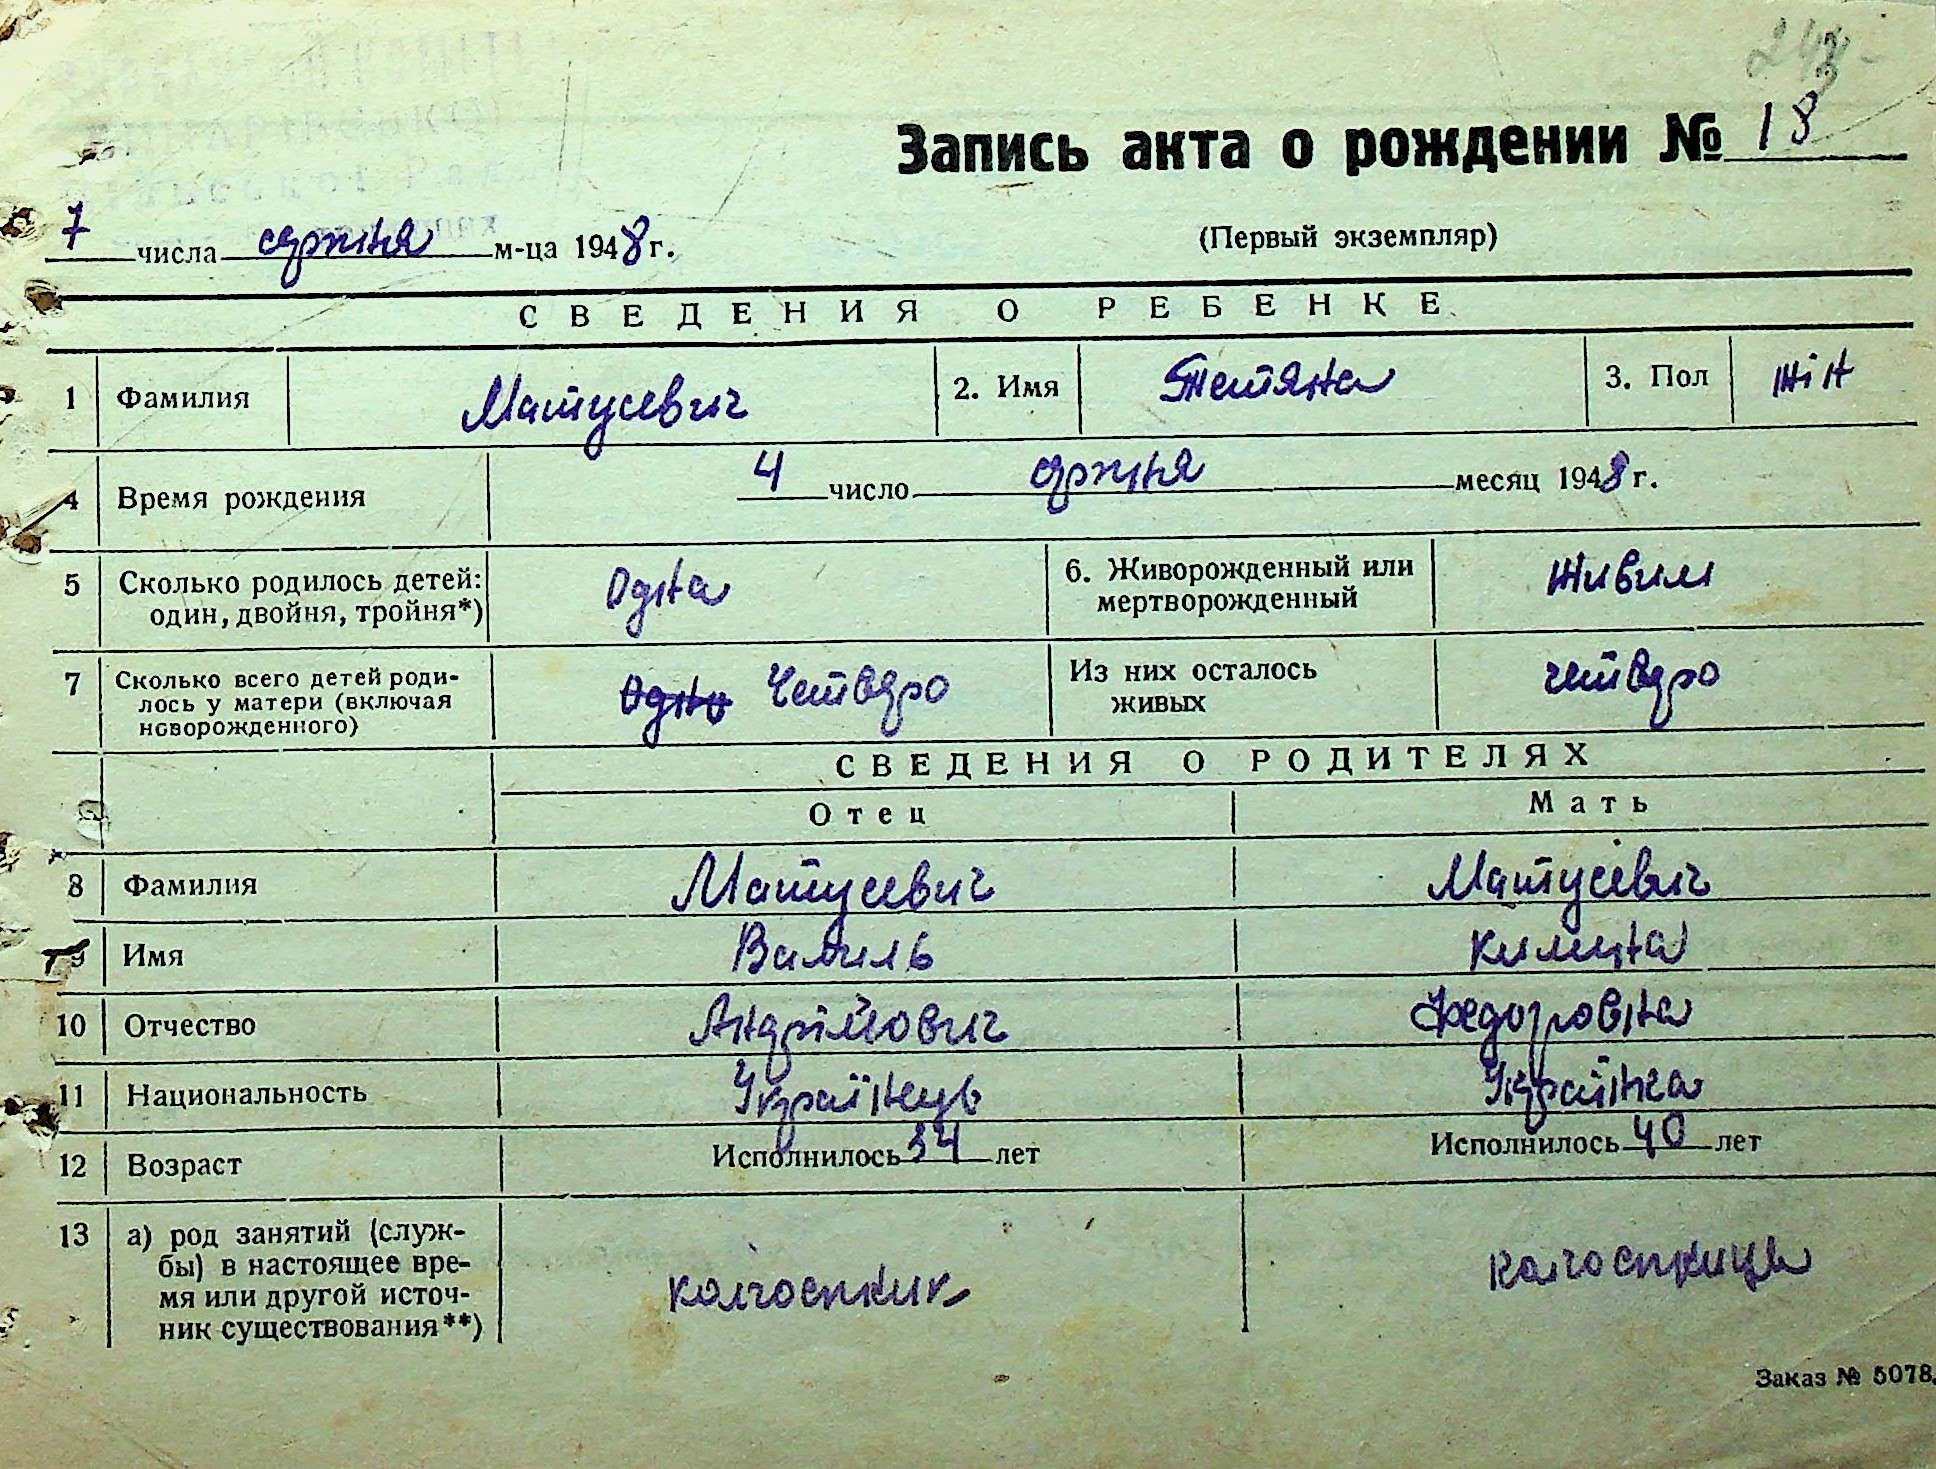 Запись акта о рождении № 18
7 числа серпня м-ца 1948 г.
(Первый экземпляр)
СВЕДЕНИЯ О РЕБЕНКЕ
1 Фамилия Матусевич 2. Имя Тетяна 3. Пол жін
4 Время рождения 4 число серпня месяц 1948 г.
5 Сколько родилось детей: один, двойня, тройня*) Одна 6. Живорожденный или мертворожденный живим
7 Сколько всего детей роди-
лось у матери (включая
новорожденного) Одно Четверо Из них осталось живых четверо
СВЕДЕНИЯ О РОДИТЕЛЯХ
Отец Мать
8 Фамилия Матусевич Матусевич
9 Имя Василь Килина
10 Отчество Андрійович Федоровна
11 Национальность Українець Українка
12 Возраст Исполнилось 34 лет Исполнилось 40 лет
13 а) род занятий (служ-
бы) в настоящее вре-
мя или другой источ-
ник существования**) колгоспник колгоспниця
Заказ № 5078.